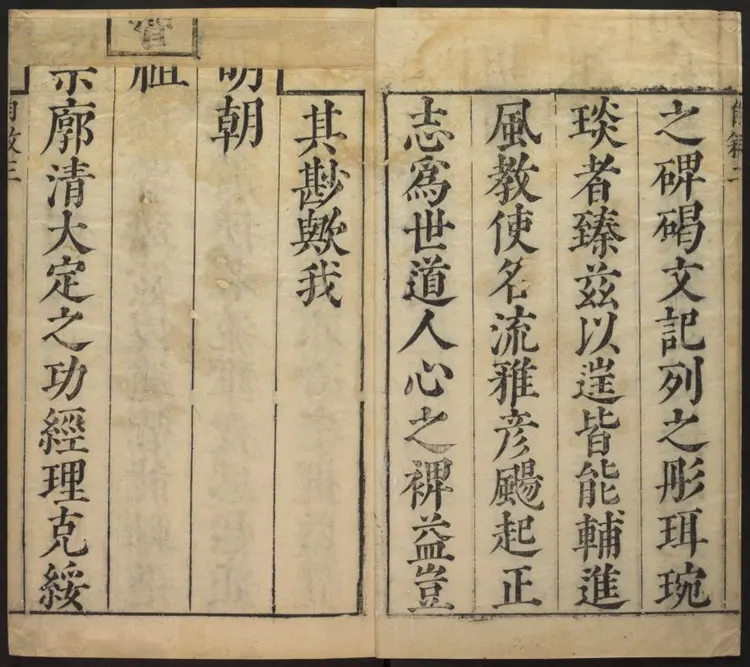 之碑碣文記列之彤珥琬
琰者臻茲以逞皆能輔進
風教使名流雅彦颺起正
志爲世道人心之裨益豈
其尠歟我
明朝
祖
宗廓清大定之功經理克綏